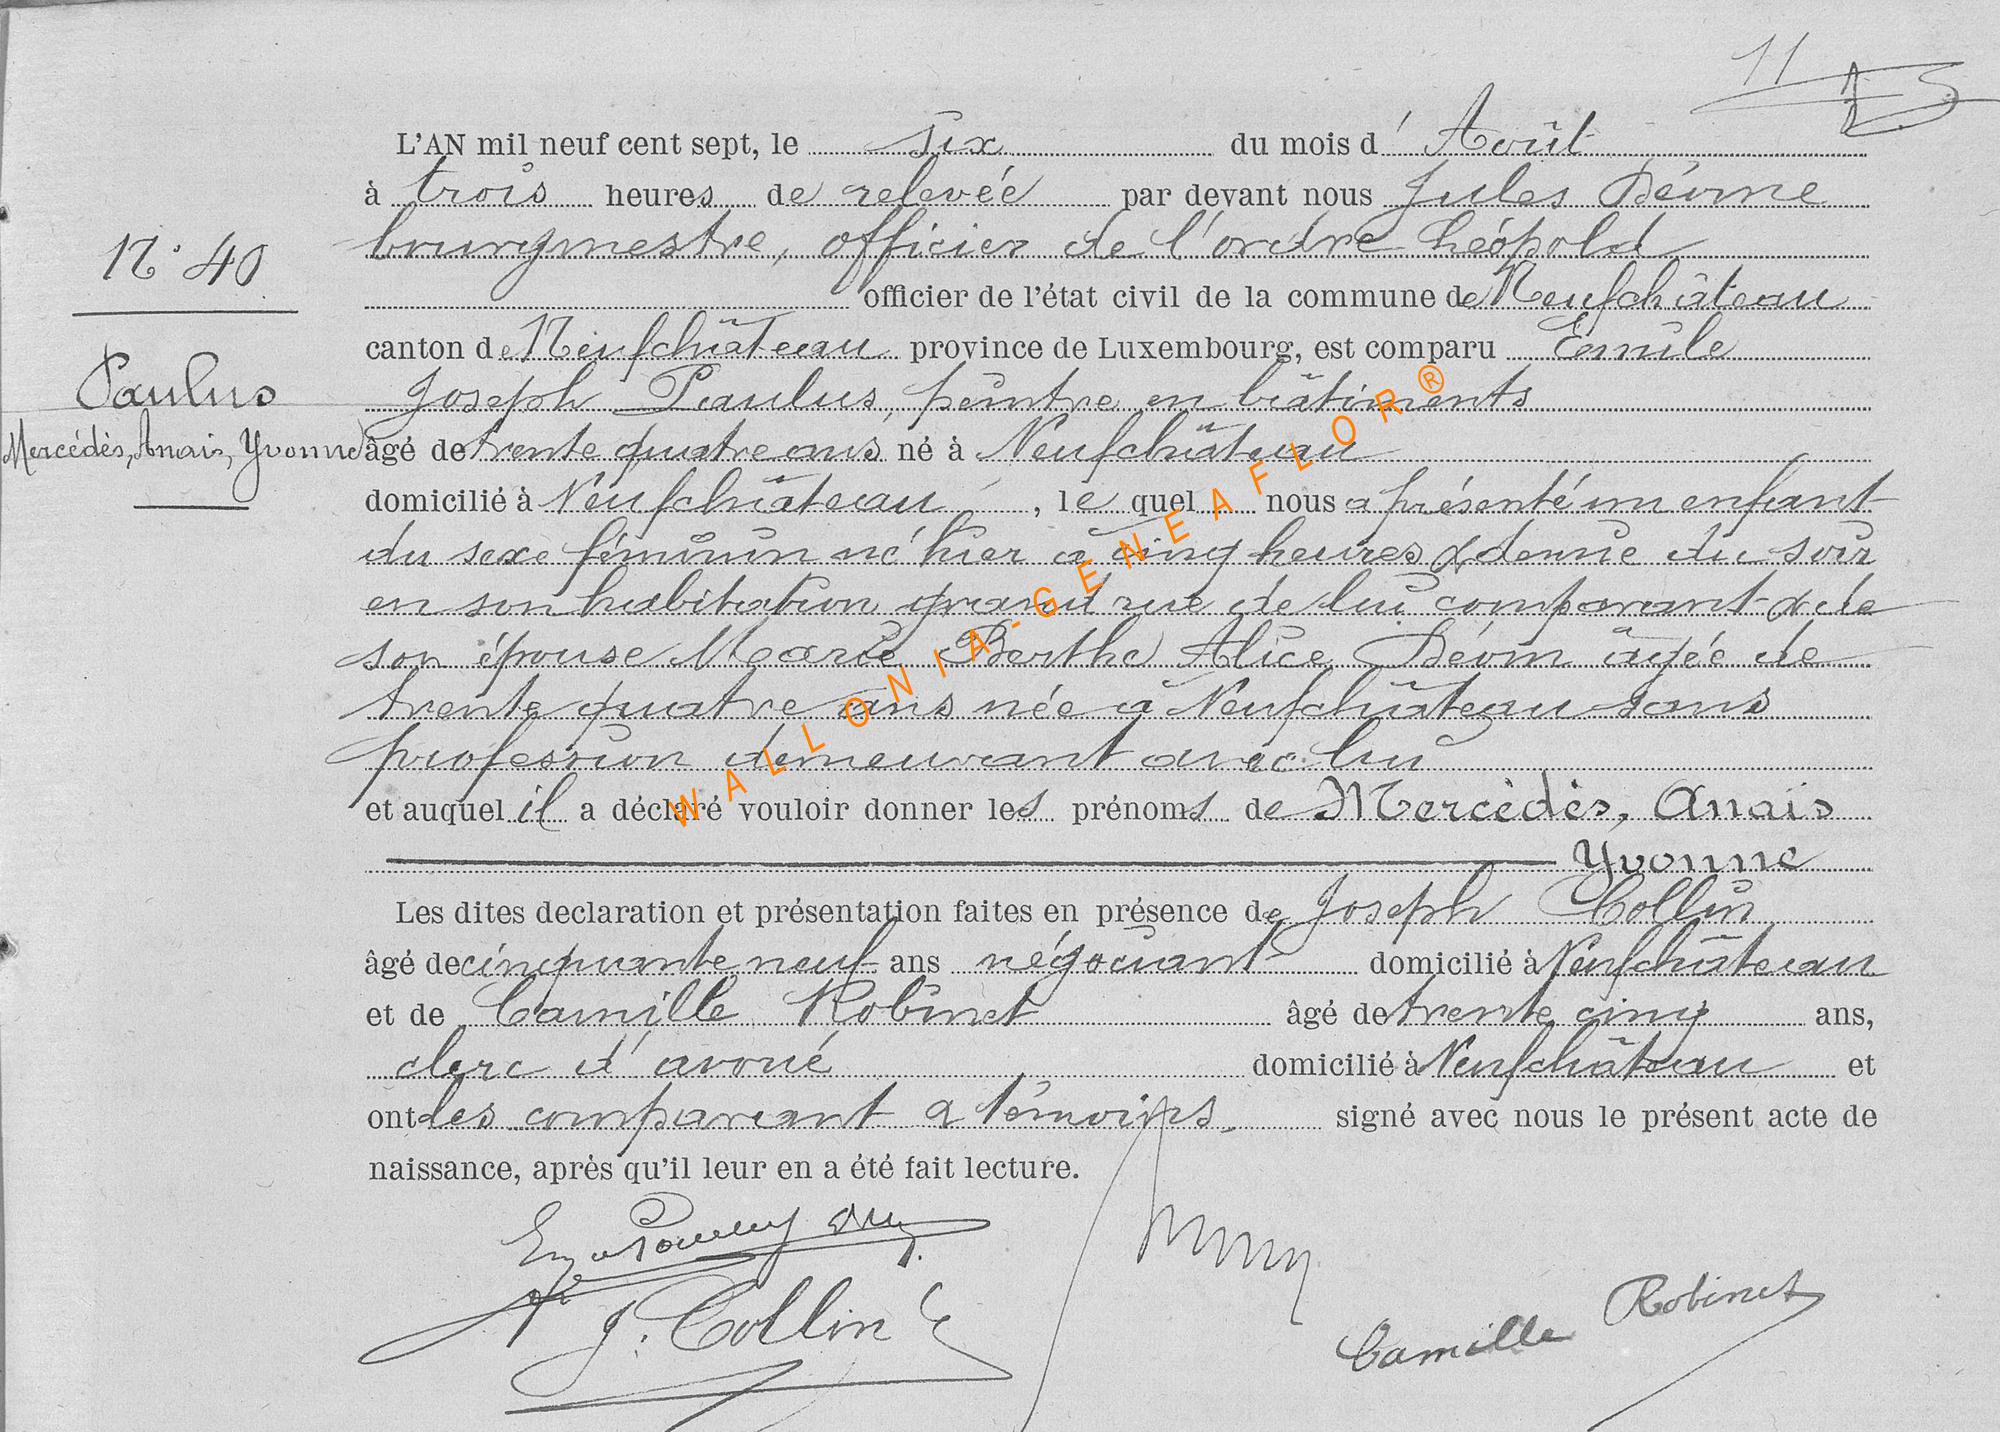 11
L'AN mil neuf cent sept, le six du mois d'Août
à trois heures de relevée par devant nous Jules
bourgmestre, officier de l'ordre Léopold
N° 40
officier de l'état civil de la commune de Neufchâteau
canton de Neufchâteau province de Luxembourg, est comparu Emile
Paulus
Joseph Paulus, peintre en bâtiments
Mercédès, Anaïs, Yvonne
âgé de trente quatre ans né à Neufchâteau
domicilié à Neufchâteau, le quel nous a présenté un enfant
du sexe féminin né hier à cinq heures & demie du soir
en son habitation grand rue de lui comparant & de
son épouse Marie Berthe Alice Déom âgée de
trente quatre ans née à Neufchâteau sans
profession demeurant avec lui
et auquel il a déclaré vouloir donner les prénoms de Mercédès, Anaïs
Yvonne
Les dites declaration et présentation faites en présence de Joseph Collin
âgé de cinquante neuf ans négociant domicilié à Neufchâteau
et de Camille Robinet âgé de trente cinq ans,
clerc d'avoué domicilié à Neufchâteau et
ont les comparant & témoins signé avec nous le présent acte de
naissance, après qu'il leur en a été fait lecture.
J. Collin
Camille Robinet
WALLONIA-GENEAFLOR®